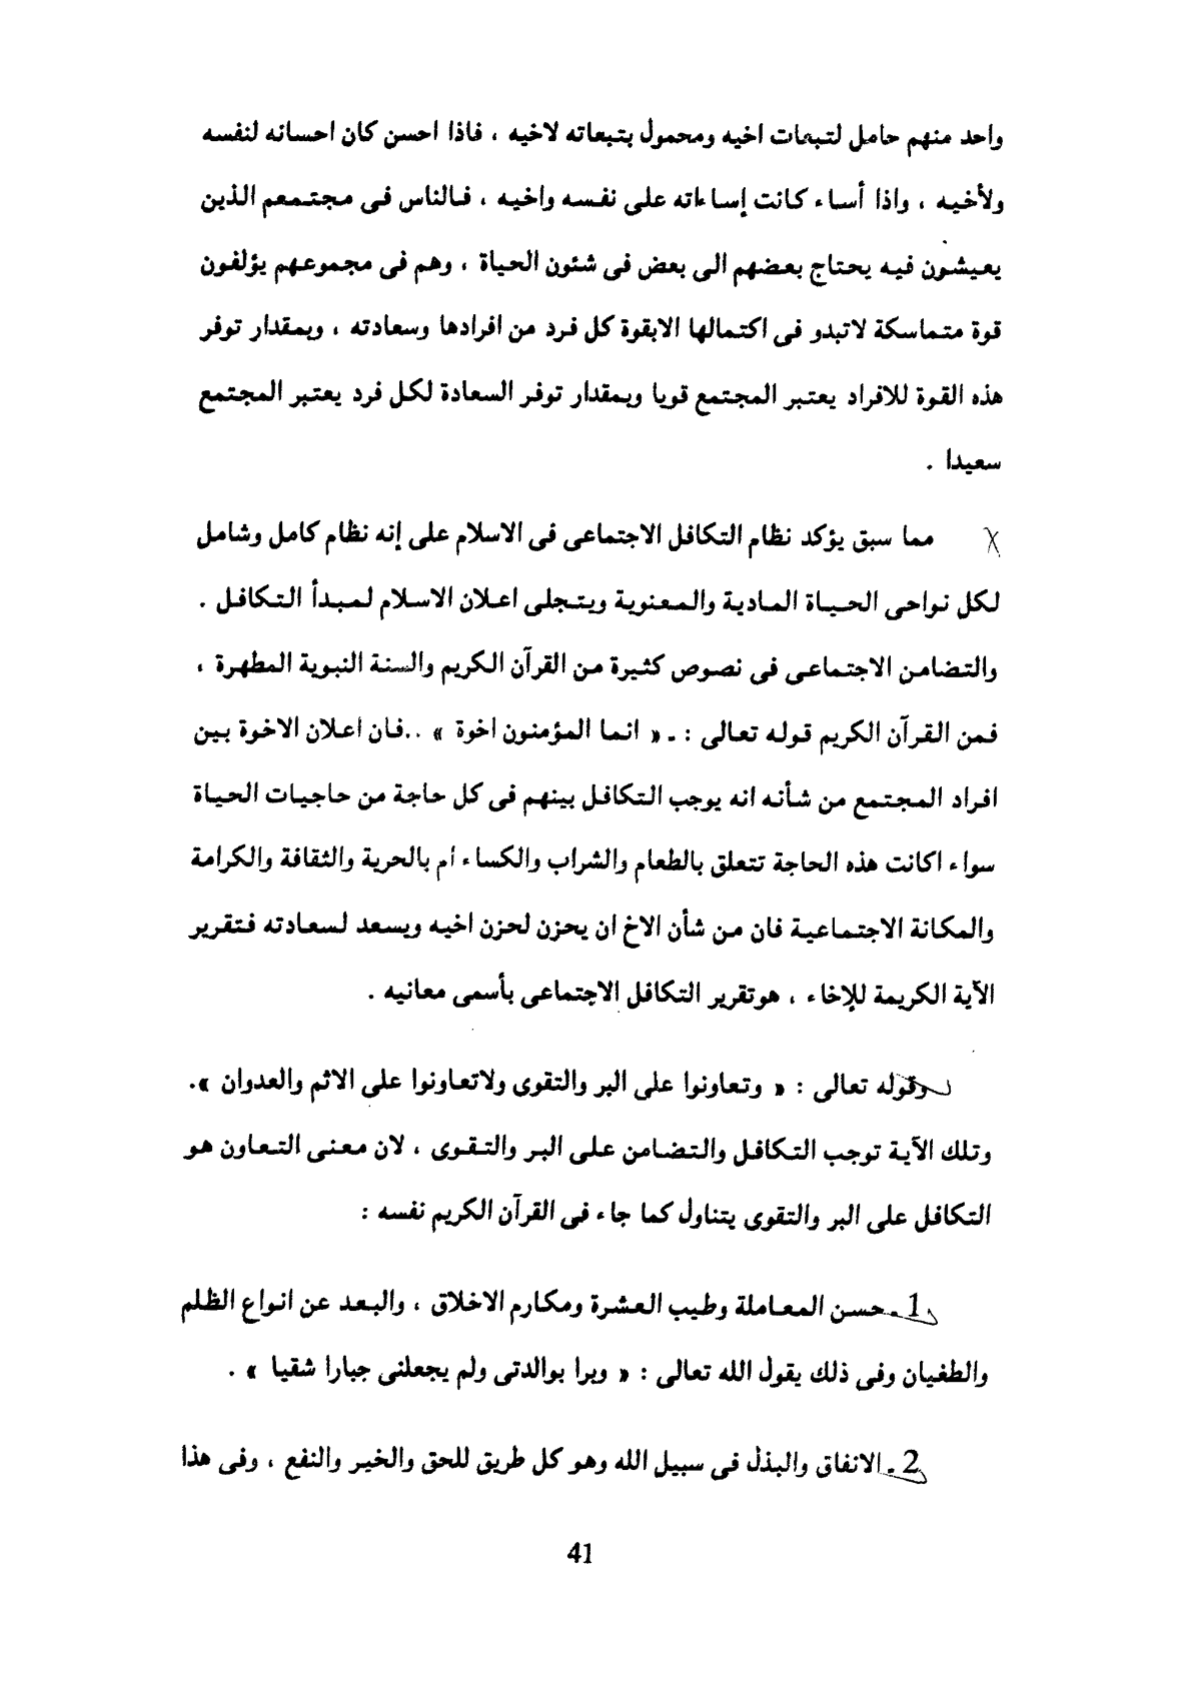 واحد منهم حامل لتبعات اخيه ومحمول بتبعاته لاخيه ، فاذا احسن كان احسانه لنفسه
ولأخيه ، واذا أساء كانت إساءاته على نفسه واخيه ، فالناس فى مجتمعم الذين
يعيشون فيه يحتاج بعضهم الى بعض فى شئون الحياة ، وهم فى مجموعهم يؤلفون
قوة متماسكة لاتبدو فى اكتمالها الابقوة كل فرد من افرادها وسعادته ، وبمقدار توفر
هذه القوة للافراد يعتبر المجتمع قويا وبمقدار توفر السعادة لكل فرد يعتبر المجتمع
سعيدا .
مما سبق يؤكد نظام التكافل الاجتماعى فى الاسلام على إنه نظام كامل وشامل
لكل نواحى الحياة المادية والمعنوية ويتجلى اعلان الاسلام لمبدأ التكافل .
والتضامن الاجتماعى فى نصوص كثيرة من القرآن الكريم والسنة النبوية المطهرة ،
فمن القرآن الكريم قوله تعالى : ـ « انما المؤمنون اخوة » ..فان اعلان الاخوة بين
افراد المجتمع من شأنه انه يوجب التكافل بينهم فى كل حاجة من حاجيات الحياة
سواء اكانت هذه الحاجة تتعلق بالطعام والشراب والكساء أم بالحرية والثقافة والكرامة
والمكانة الاجتماعية فان من شأن الاخ ان يحزن لحزن اخيه ويسعد لسعادته فتقرير
الآية الكريمة للإخاء ، هوتقرير التكافل الاجتماعى بأسمى معانيه .
وقوله تعالى : « وتعاونوا على البر والتقوى ولاتعاونوا على الاثم والعدوان ».
وتلك الآية توجب التكافل والتضامن على البر والتقوى ، لان معنى التعاون هو
التكافل على البر والتقوى يتناول كما جاء فى القرآن الكريم نفسه :
1ـ حسن المعاملة وطيب العشرة ومكارم الاخلاق ، والبعد عن انواع الظلم
والطغيان وفى ذلك يقول الله تعالى : « وبرا بوالدتى ولم يجعلنى جبارا شقيا » .
2ـ الانفاق والبذل فى سبيل الله وهو كل طريق للحق والخير والنفع ، وفى هذا
41